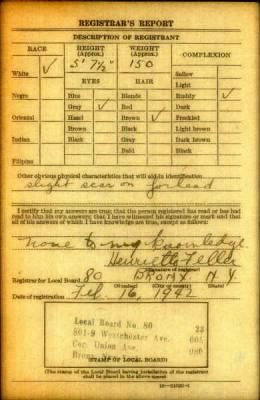 REGISTRAR'S REPORT
DESCRIPTION OF REGISTRANT
RACE HEIGHT (Approx.) WEIGHT (Approx.) COMPLEXION
White ✓ 5' 7½" 150 Sallow
EYES HAIR Light
Negro Blue Blonde Ruddy ✓
Gray ✓ Red Dark
Oriental Hazel Brown ✓ Freckled
Brown Black Light brown
Indian Black Gray Dark brown
Bald Black
Filipino
Other obvious physical characteristics that will aid in identification
slight scar on forhead
I certify that my answers are true; that the person registered has read or has had
read to him his own answers; that I have witnessed his signature or mark and that
all of his answers of which I have knowledge are true, except as follows:
none to my knowledge
Henrietta Feller
(Signature of registrar)
Registrar for Local Board 80 BRONX N.Y.
(Number) (City or county) (State)
Date of registration Feb. 16, 1942
Local Board No. 80 23
801-9 Westchester Ave. 005
Cor. Union Ave. 080
Bronx
(STAMP OF LOCAL BOARD)
(The stamp of the Local Board having jurisdiction of the registrant
shall be placed in the above space)